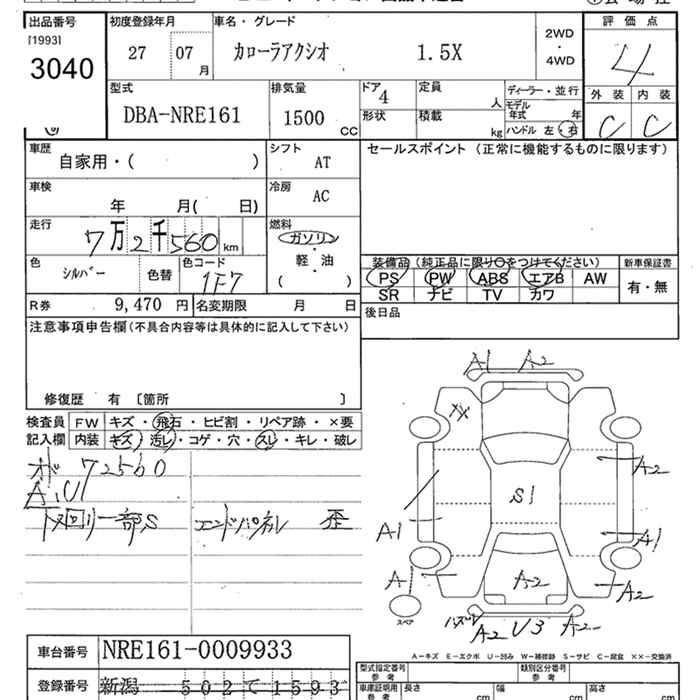 出品番号 初度登録年月 車名・グレード 評価点
[1993]
3040 27 07 月 カローラアクシオ 1.5X 2WD ・ 4WD 4
型式 排気量 ドア 4 定員 人 ディーラー・並行 外装 内装
DBA-NRE161 1500 CC 形状 積載 kg モデル年式 年 C C
ハンドル 左・右
車歴 シフト セールスポイント (正常に機能するものに限ります)
自家用・( ) AT
車検 冷房
年 月( 日) AC
走行 燃料
7万2千560 km ガソリン
軽・油
( )
色 シルバー 色替 色コード 1F7
装備品 (純正品に限り○をつけてください) 新車保証書
PS PW ABS エアB AW 有・無
SR ナビ TV カワ
R券 9,470 円 名変期限 月 日
後日品
注意事項申告欄 (不具合内容等は具体的に記入して下さい)
修復歴 有 〔箇所 〕
検査員 FW キズ・飛石・ヒビ割・リペア跡・×要
記入欄 内装 キズ・汚レ・コゲ・穴・スレ・キレ・破レ
72560
A,U1
下廻り一部S エンドパネル 歪
A1 A2
A2
S1
A1 A1
A1 A2 A2
スペア A2 U3 A2
A-キズ E-エクボ U-凹み W-補修跡 S-サビ C-腐食 ××-交換済
車台番号 NRE161-0009933
登録番号 新潟 502 て 1593
型式指定番号 参考 類別区分番号 参考
車庫証明用 参考 長さ cm 幅 cm 高さ cm